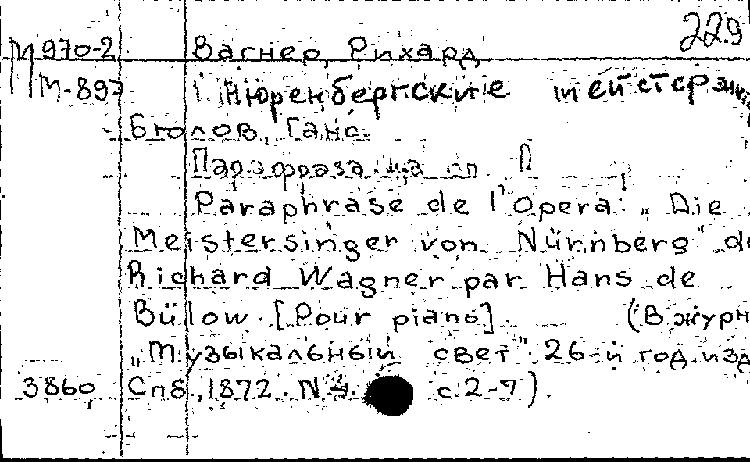 229
М970-2 Вагнер, Рихард
М-897 Нюренбергские мейстерзин
Бюлов, Ганс.
Парафраза на оп. П
Paraphrase de l'Opera: „Die
Meistersinger von Nürnberg" de
Richard Wagner par Hans de
Bülow. [Pour piano]. (В журн
„Музыкальный свет" 26-й год изд
3860 Спб., 1872. N 4. с. 2-7).